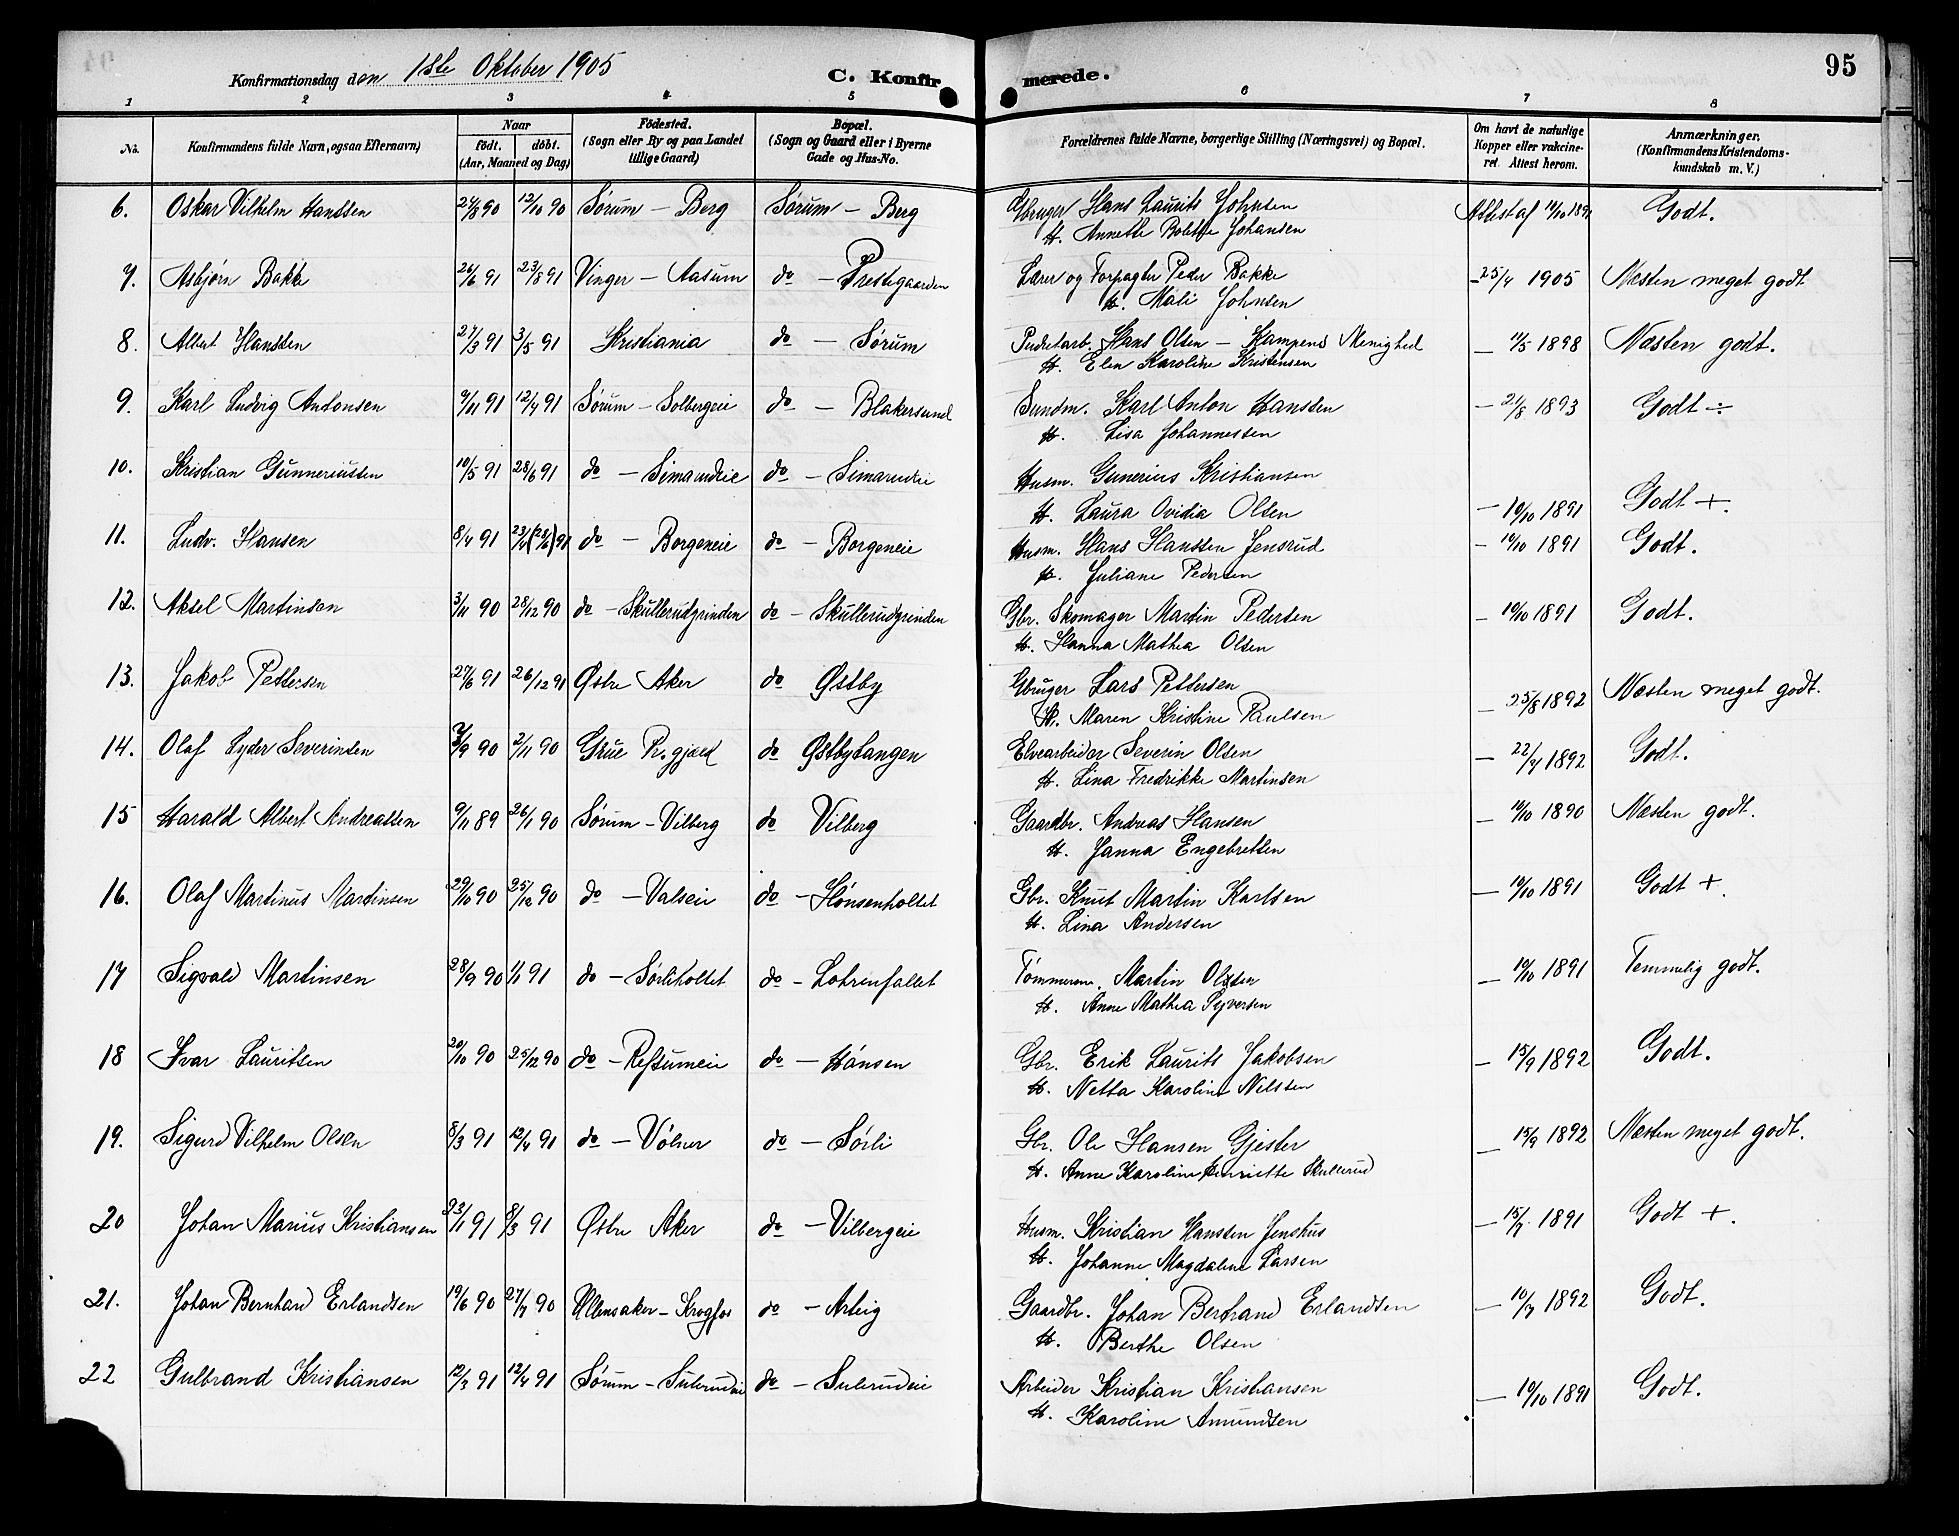 Konfirmationsdag den 1ste Oktober 1905 C. Konfir merede. 95
1 2 3 4 5 6 7 8
No.
Konfirmandens fulde Navn, ogsaa Efternavn.)
Naar
födt. döbt.
(Aar, Maaned og Dag)
Födested.
(Sogn eller By og paa Landet
tillige Gaard)
Bopæl.
(Sogn og Gaard eller i Byerne
Gade og Hus-No.
Forældrenes fulde Navne, borgerlige Stilling (Næringsvei) og Bopæl.
Om havt de naturlige
Kopper eller vakcine-
ret. Attest herom.
Anmærkninger.
(Konfirmandens Kristendoms-
kundskab m. V.)
6. Oskar Vilhelm Hanssen 24/8 90 12/10 90 Sørum - Berg Sørum - Berg Gbruger Hans Laurits Johnsen Attest af 14/10 1891 Godt.
H. Annette Bolette Johansen
7. Asbjørn Bakke 26/6 91 23/8 91 Vinger - Aasum do - Prestegaarden Lærer og Forpagter Peder Bakke - 25/4 1905 Næsten meget godt
H. Mali Johnsen
8. Albert Hanssen 27/3 91 3/5 91 Kristiania do - Sørum Pudretarb. Hans Olsen - Kampens Menighed - 11/5 1898 Næsten godt.
H. Elen Karoline Kristensen
9. Karl Ludvig Antonsen 9/11 91 12/4 91 Sørum - Solbergeie do - Blakersund Sundm. Karl Anton Hanssen - 21/8 1893 Godt ÷
H. Lisa Johannessen
10. Kristian Gunneriussen 10/5 91 28/6 91 do - Simarudeie do - Simarudeie Husm. Gunerius Kristiansen
H. Laura Ovidia Olsen - 10/10 1891 Godt +.
11. Ludv. Hansen 8/4 91 23/4 (28/6) 91 do - Borgeneie do - Borgeneie Husm. Hans Hanssen Jensrud - 10/10 1891 Godt.
H. Juliane Pedersen
12. Aksel Martinsen 3/11 90 28/12 90 do - Skullerudgrinden do - Skullerudgrinden Gbr. Skomager Martin Pedersen - 10/10 1891 Godt.
H. Hanna Mathea Olsen
13. Jakob Pettersen 27/6 91 26/12 91 Østre Aker do Østby Gbruger Lars Pettersen
H. Maren Kristine Paulsen - 25/8 1892 Næsten meget godt.
14. Olaf Lyder Severinsen /9 90 2/11 90 Grue Pr.gjæld do Østbytangen Elvearbeider Severin Olsen - 22/7 1892 Godt.
H. Lina Fredrikke Martinsen
15 Harald Albert Andreassen 9/11 89 26/1 90 Sørum - Vilberg do Vilberg Gaardbr. Andreas Hansen - 10/10 1890 Næsten godt.
H. Janna Engebretsen
16. Olaf Martinus Martinsen 29/10 90 25/12 90 do - Valseie do - Hønsenholtet Gbr. Knut Martin Karlsen - 10/10 1891 Godt +.
H. Lina Andersen
17 Sigvald Martinsen 28/9 90 1/1 91 do - Sørliholtet do - Lohrenfallet Tømmerm. Martin Olsen - 10/10 1891 Temmelig godt.
H. Anne Mathea Syversen
18 Ivar Lauritsen 20/10 90 25/12 90 do - Refsumeie do - Hønsen Gbr. Erik Laurits Jakobsen - 15/9 1892 Godt.
H. Netta Karoline Nilssen
19. Sigurd Vilhelm Olsen 8/3 91 12/4 91 do - Vølner do - Sørli Gbr. Ole Hansen Gjester - 15/9 1892 Næsten meget godt.
H. Anne Karoline Henriette Skullerud
20 Johan Marius Kristiansen 23/1 91 8/3 91 Østre Aker do - Vilbergeie Husm. Kristian Hanssen Jenshus - 15/7 1891 Godt +.
H. Johanne Magdalene Larsen
21. Johan Bernhard Erlandsen 19/6 90 27/7 90 Ullensaker - Krogfos do - Arteig Gaardbr. Johan Bertrand Erlandsen - 10/7 1892 Godt.
H. Berthe Olsen
22 Gulbrand Kristiansen 12/3 91 12/4 91 Sørum - Sulerudeie do - Sulerudeie Arbeider Kristian Kristiansen - 10/10 1891 Godt.
H. Karoline Amundsen